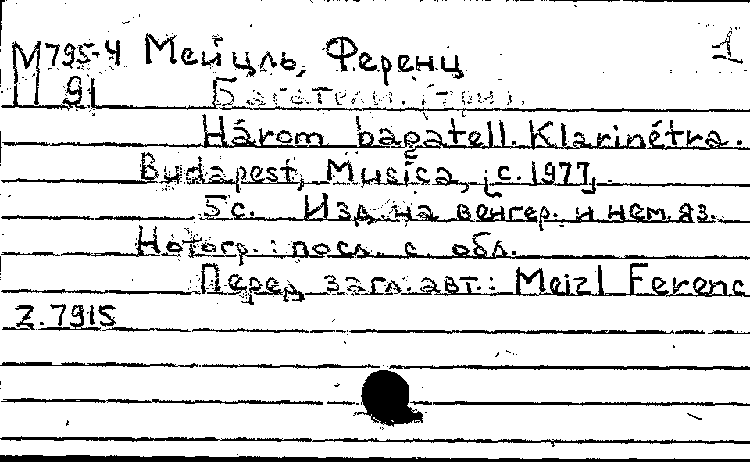 М 795-4 Мейцль, Ференц 1
М 91 Багатели. (три).
Három bagatell. Klarinétra.
Budapest, Musica, [с. 1977].
5 с. Изд. на венгер. и нем. яз.
Нотогр.: посл. с. обл.
Перед загл. авт.: Meizl Ferenc
Z.7915